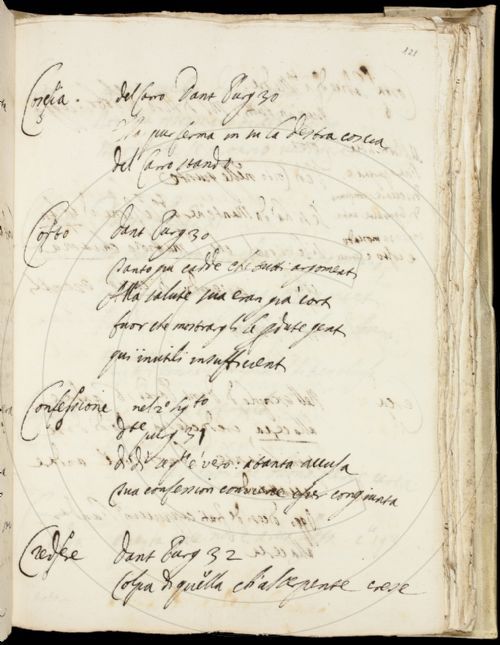 121
Coscia. del Carro Dant Purg 30
Ella pur ferma in su la destra coscia
del Carro stando
Corto Dant Purg 30
Tanto giu cadde che tutti argomenti
Alla salute sua eran già corti
fuor che mostrargli le pdute genti
Confessione nel 2º
Dte purg. 31
dì dì se qto è vero: a tanta accusa
tua confession conviene esser congiunta
Credere Dant Purg 32
Colpa di quella ch'al serpente crese